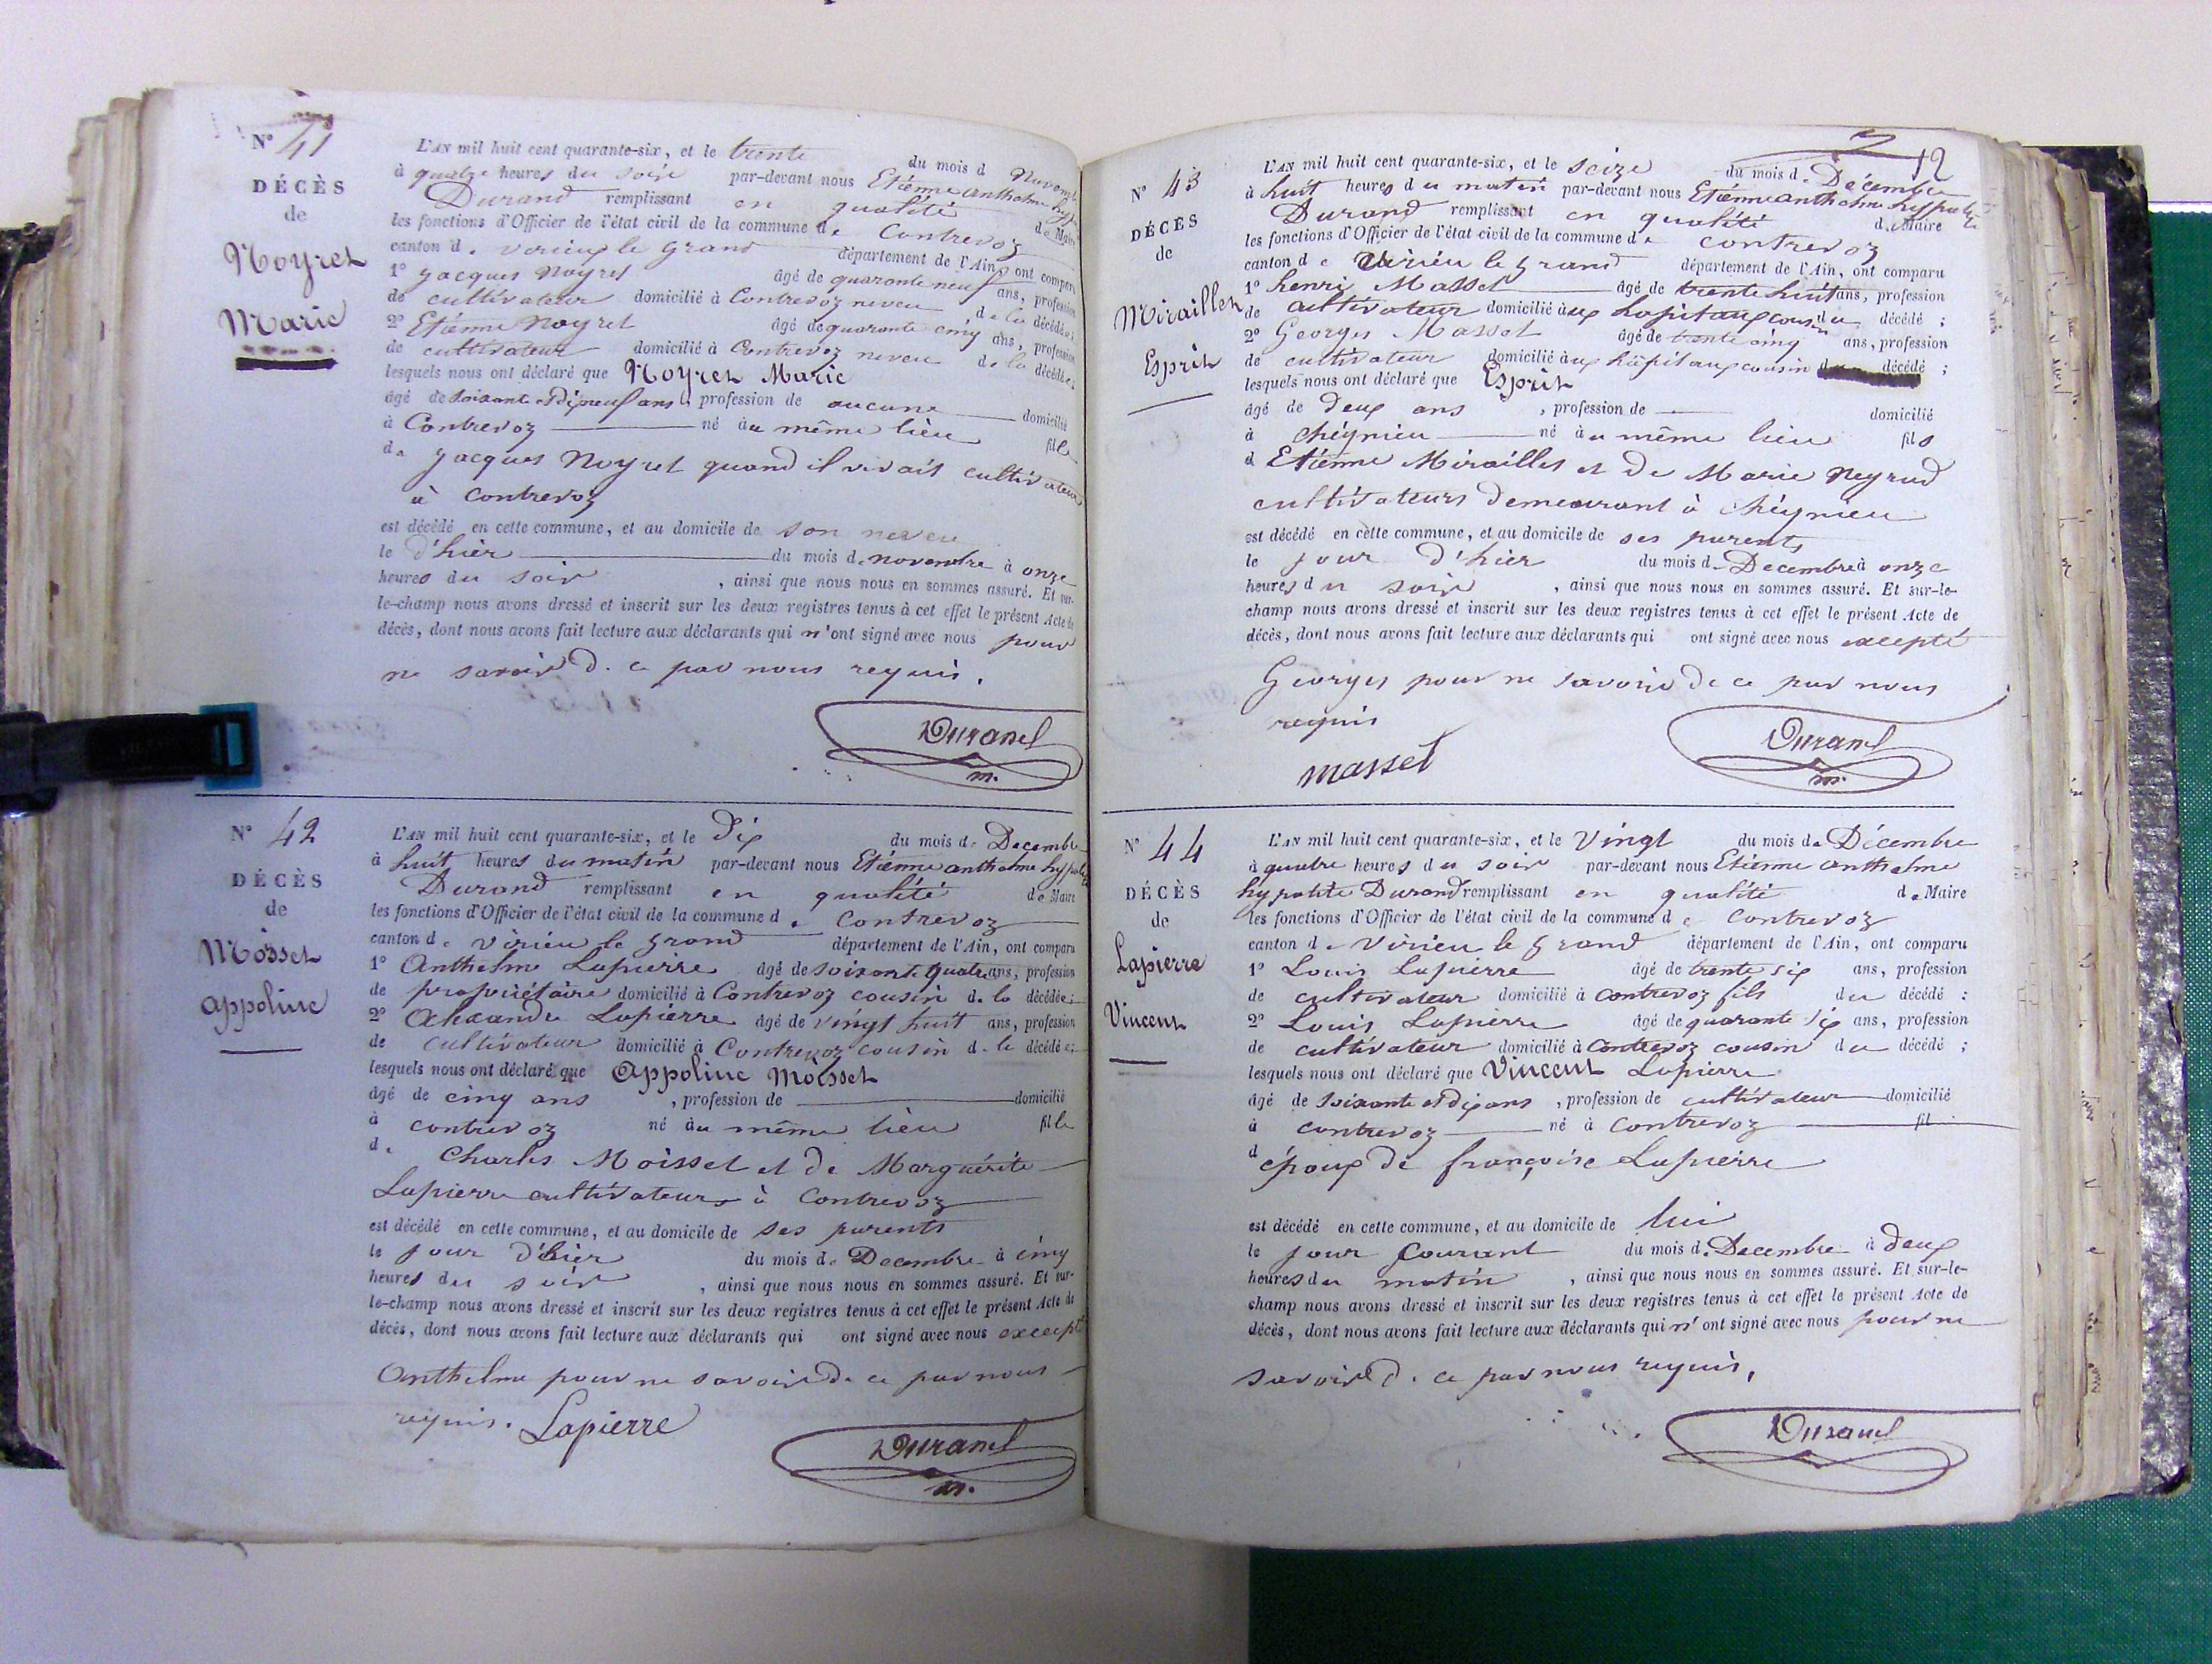 N° 41
DÉCÈS
de
Noyret
Marie
L'AN mil huit cent quarante-six, et le trente du mois d Novemb
à quatre heures du soir par-devant nous Etienne anthelme hypp
Durand remplissant en qualité de Maire
les fonctions d'Officier de l'état civil de la commune de Contrevoz
canton de virieu le grand département de l'Ain, ont comparu
1° jacques noyret âgé de quarante neuf ans, profession
de cultivateur domicilié à Contrevoz neveu de la décédée;
2° Etienne noyret âgé de quarante cinq ans, profession
de cultivateur domicilié à Contrevoz neveu de la décédée;
lesquels nous ont déclaré que Noyret Marie
âgé de soixante et dixneuf ans, profession de aucune domicilié
à Contrevoz né au même lieu fille
de jacques Noyret quand il vivait cultivateur
à contrevoz
est décédé en cette commune, et au domicile de son neveu
le d'hier du mois de novembre à onze
heures du soir, ainsi que nous nous en sommes assuré. Et sur-
le-champ nous avons dressé et inscrit sur les deux registres tenus à cet effet le présent Acte de
décès, dont nous avons fait lecture aux déclarants qui n'ont signé avec nous pour
ne savoir de ce par nous requis.
Durand
m.
N° 42
DÉCÈS
de
Mosset
appoline
L'AN mil huit cent quarante-six, et le dix du mois de Decembre
à huit heures du matin par-devant nous Etienne anthelme hyppolite
Durand remplissant en qualité de Maire
les fonctions d'Officier de l'état civil de la commune de Contrevoz
canton de virieu le grand département de l'Ain, ont comparu
1° Anthelme Lapierre âgé de soixante quatre ans, profession
de propriétaire domicilié à Contrevoz cousin de la décédée;
2° Alexandre Lapierre âgé de vingt huit ans, profession
de cultivateur domicilié à Contrevoz cousin de la décédée;
lesquels nous ont déclaré que Appoline Moisset
âgé de cinq ans, profession de domicilié
à contrevoz né au même lieu fille
de Charles Moisset et de Marguérite
Lapierre cultivateurs à Contrevoz
est décédé en cette commune, et au domicile de ses parents
le jour d'hier du mois de Decembre à cinq
heures du soir, ainsi que nous nous en sommes assuré. Et sur-
le-champ nous avons dressé et inscrit sur les deux registres tenus à cet effet le présent Acte de
décès, dont nous avons fait lecture aux déclarants qui ont signé avec nous excepté
Anthelme pour ne savoir de ce par nous
requis. Lapierre
Durand
m.
12
N° 43
DÉCÈS
de
Miraillet
Esprit
L'AN mil huit cent quarante-six, et le seize du mois de Décembre
à huit heures du matin par-devant nous Etienne anthelme hyppolite
Durand remplissant en qualité de Maire
les fonctions d'Officier de l'état civil de la commune de contrevoz
canton de Virieu le grand département de l'Ain, ont comparu
1° henri Masset âgé de trente huit ans, profession
de cultivateur domicilié aux hopitaux cousin du décédé;
2° Georges Masset âgé de trente cinq ans, profession
de cultivateur domicilié aux hôpitaux cousin décédé;
lesquels nous ont déclaré que Esprit
âgé de deux ans, profession de domicilié
à chégnieu né au même lieu fils
d Etienne Miraillet et de Marie Neyrud
cultivateurs demeurant à chégnieu
est décédé en cette commune, et au domicile de ses parents
le jour d'hier du mois de Decembre à onze
heures du soir, ainsi que nous nous en sommes assuré. Et sur-le-
champ nous avons dressé et inscrit sur les deux registres tenus à cet effet le présent Acte de
décès, dont nous avons fait lecture aux déclarants qui ont signé avec nous excepté
Georges pour ne savoir de ce par nous
requis
masset
Durand
m.
N° 44
DÉCÈS
de
Lapierre
Vincent
L'AN mil huit cent quarante-six, et le vingt du mois de Décembre
à quatre heures du soir par-devant nous Etienne anthelme
hypolite Durand remplissant en qualité de Maire
les fonctions d'Officier de l'état civil de la commune de contrevoz
canton de virieu le grand département de l'Ain, ont comparu
1° Louis Lapierre âgé de trente six ans, profession
de cultivateur domicilié à contrevoz fils du décédé:
2° Louis Lapierre âgé de quarante six ans, profession
de cultivateur domicilié à Contrevoz cousin du décédé;
lesquels nous ont déclaré que Vincent Lapierre
âgé de soixante et dix ans, profession de cultivateur domicilié
à contrevoz né à contrevoz fil
d époux de françoise Lapierre
est décédé en cette commune, et au domicile de lui
le jour Courant du mois de Decembre à deux
heures du matin, ainsi que nous nous en sommes assuré. Et sur-le-
champ nous avons dressé et inscrit sur les deux registres tenus à cet effet le présent Acte de
décès, dont nous avons fait lecture aux déclarants qui n'ont signé avec nous pour ne
savoir de ce par nous requis,
Durand